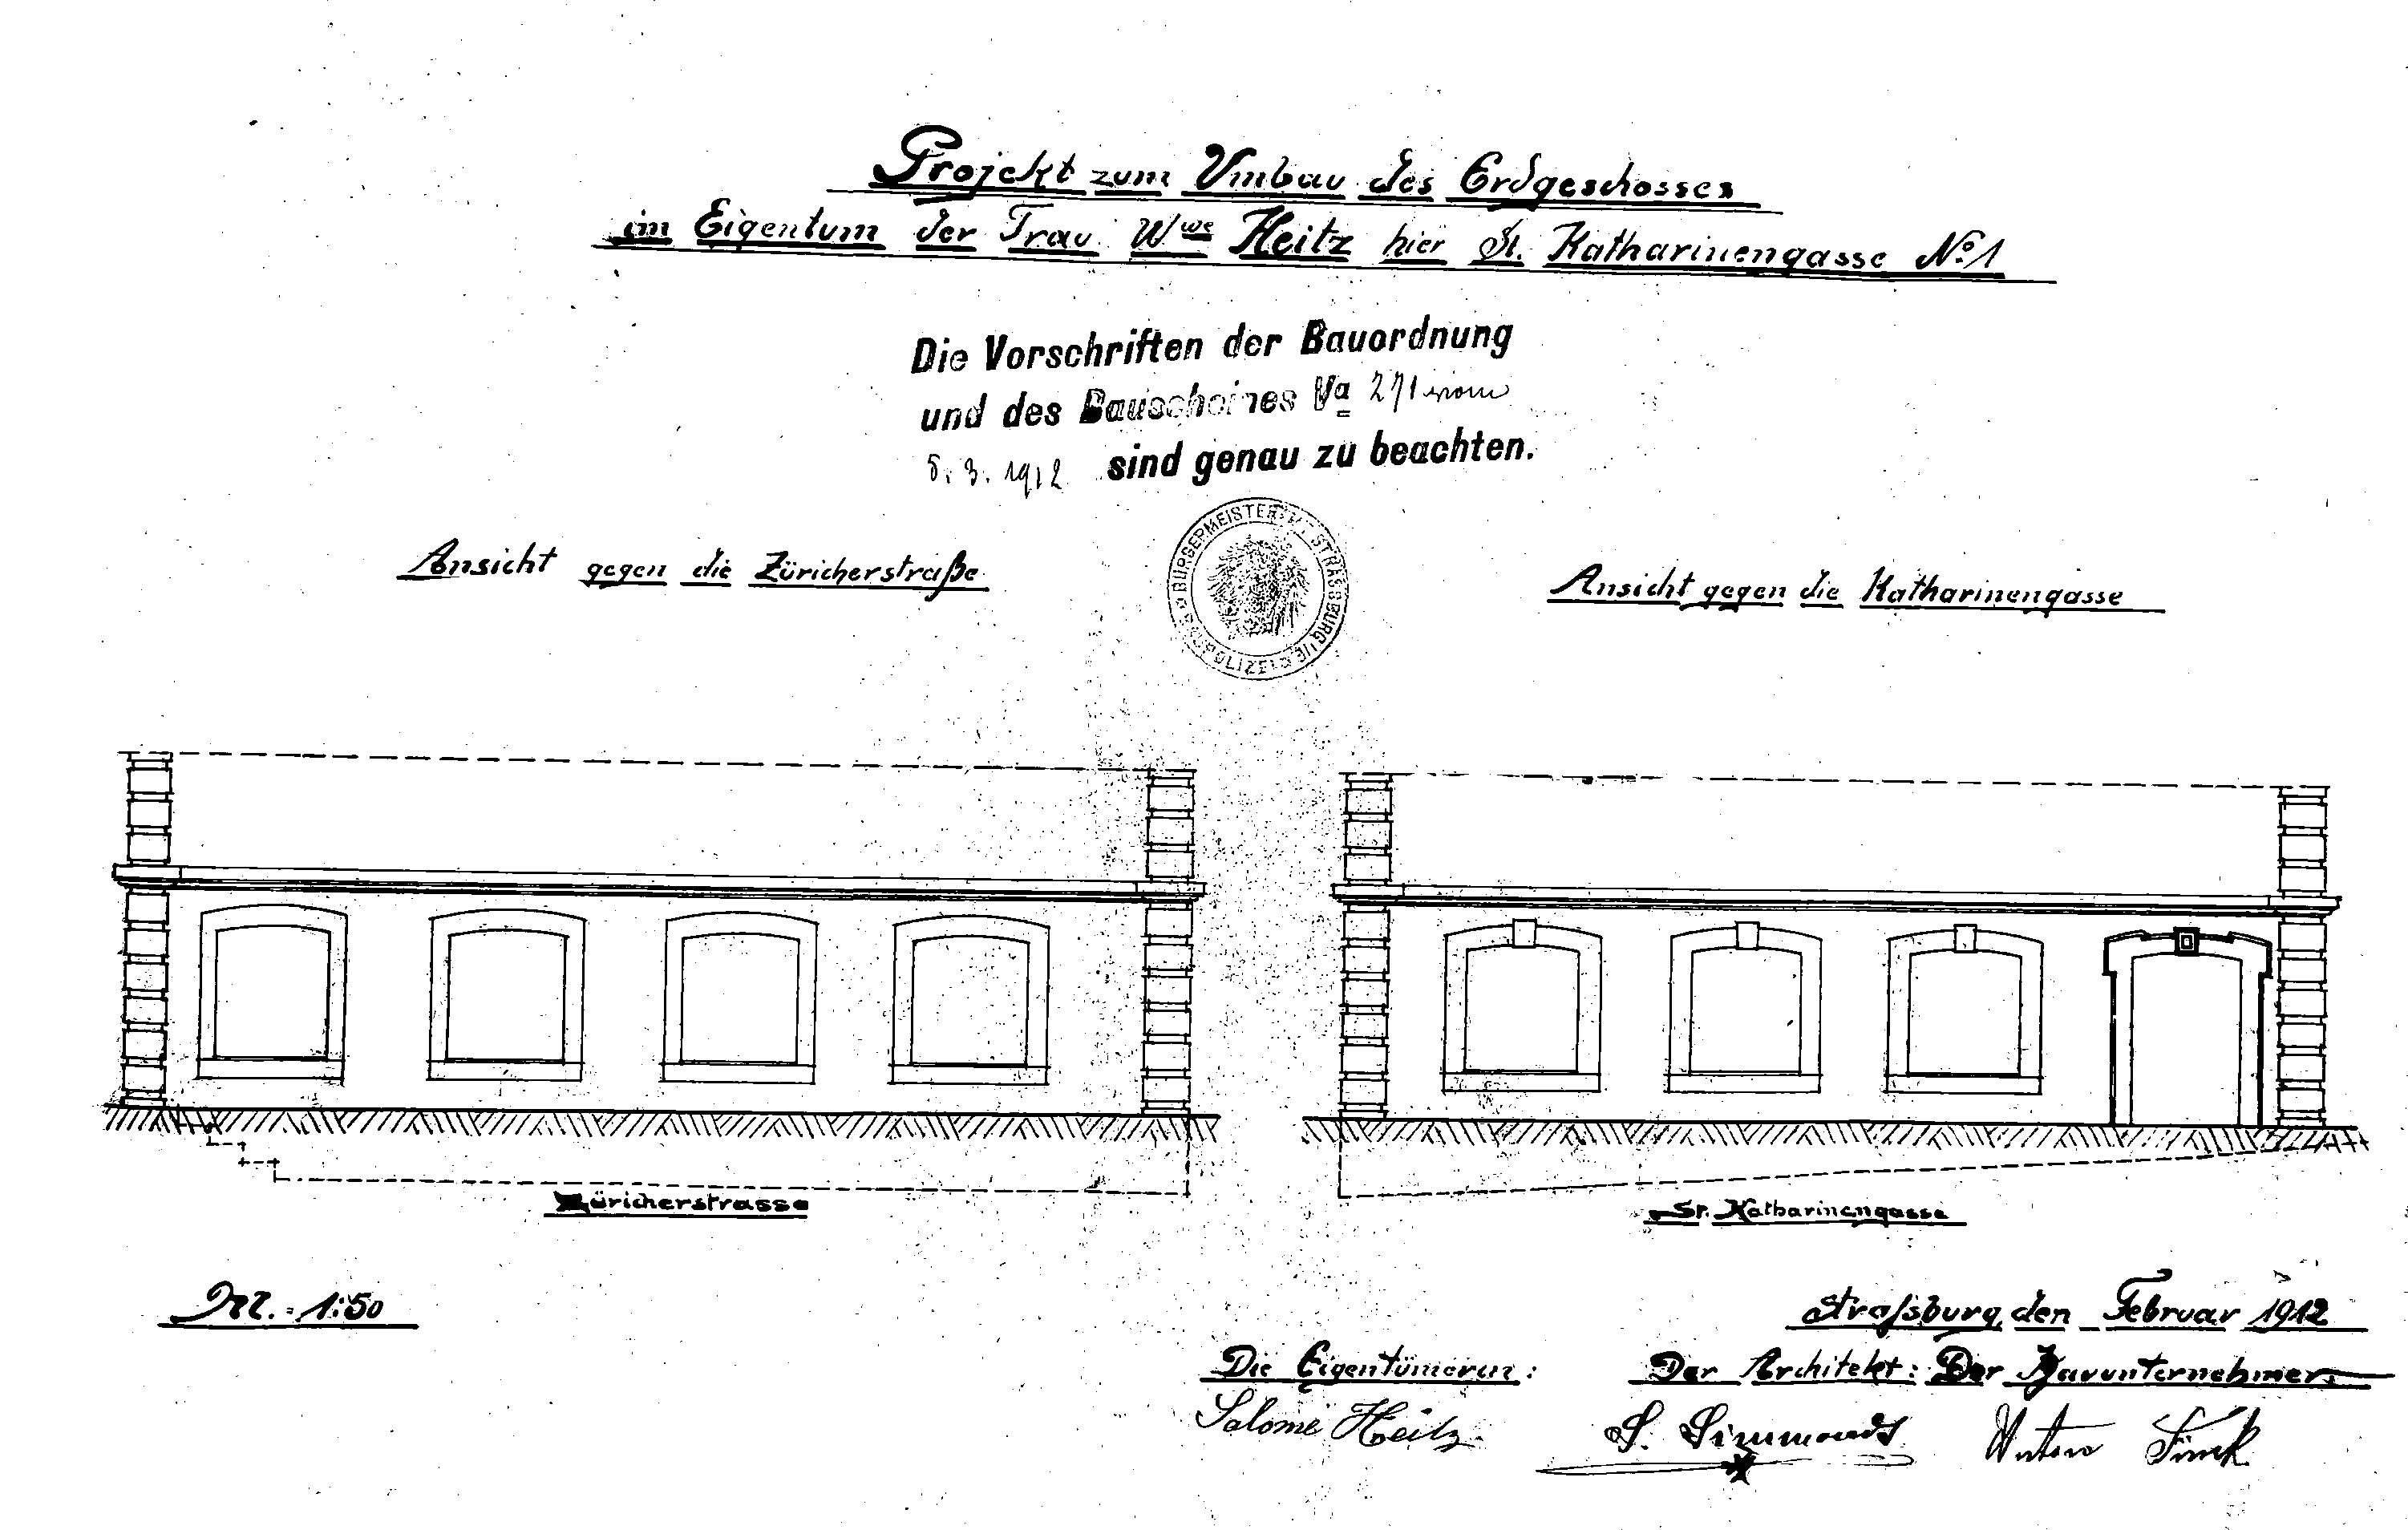 Projekt zum Umbau des Erdgeschosses
im Eigentum der Frau Wwe Heitz hier St. Katharinengasse No 1
Die Vorschriften der Bauordnung
und des Bauscheines Va 271 vom
8. 3. 1912 sind genau zu beachten.
BÜRGERMEISTERAMT STRASSBURG I/E
POLIZEI
Ansicht gegen die Züricherstraße
Ansicht gegen die Katharinengasse
Züricherstrasse
St. Katharinengasse
M. = 1:50
Straſsburg, den Februar 1912
Die Eigentümerin: Der Architekt: Der Bauunternehmer:
Salome Heitz S. Simmonds Anton Finck